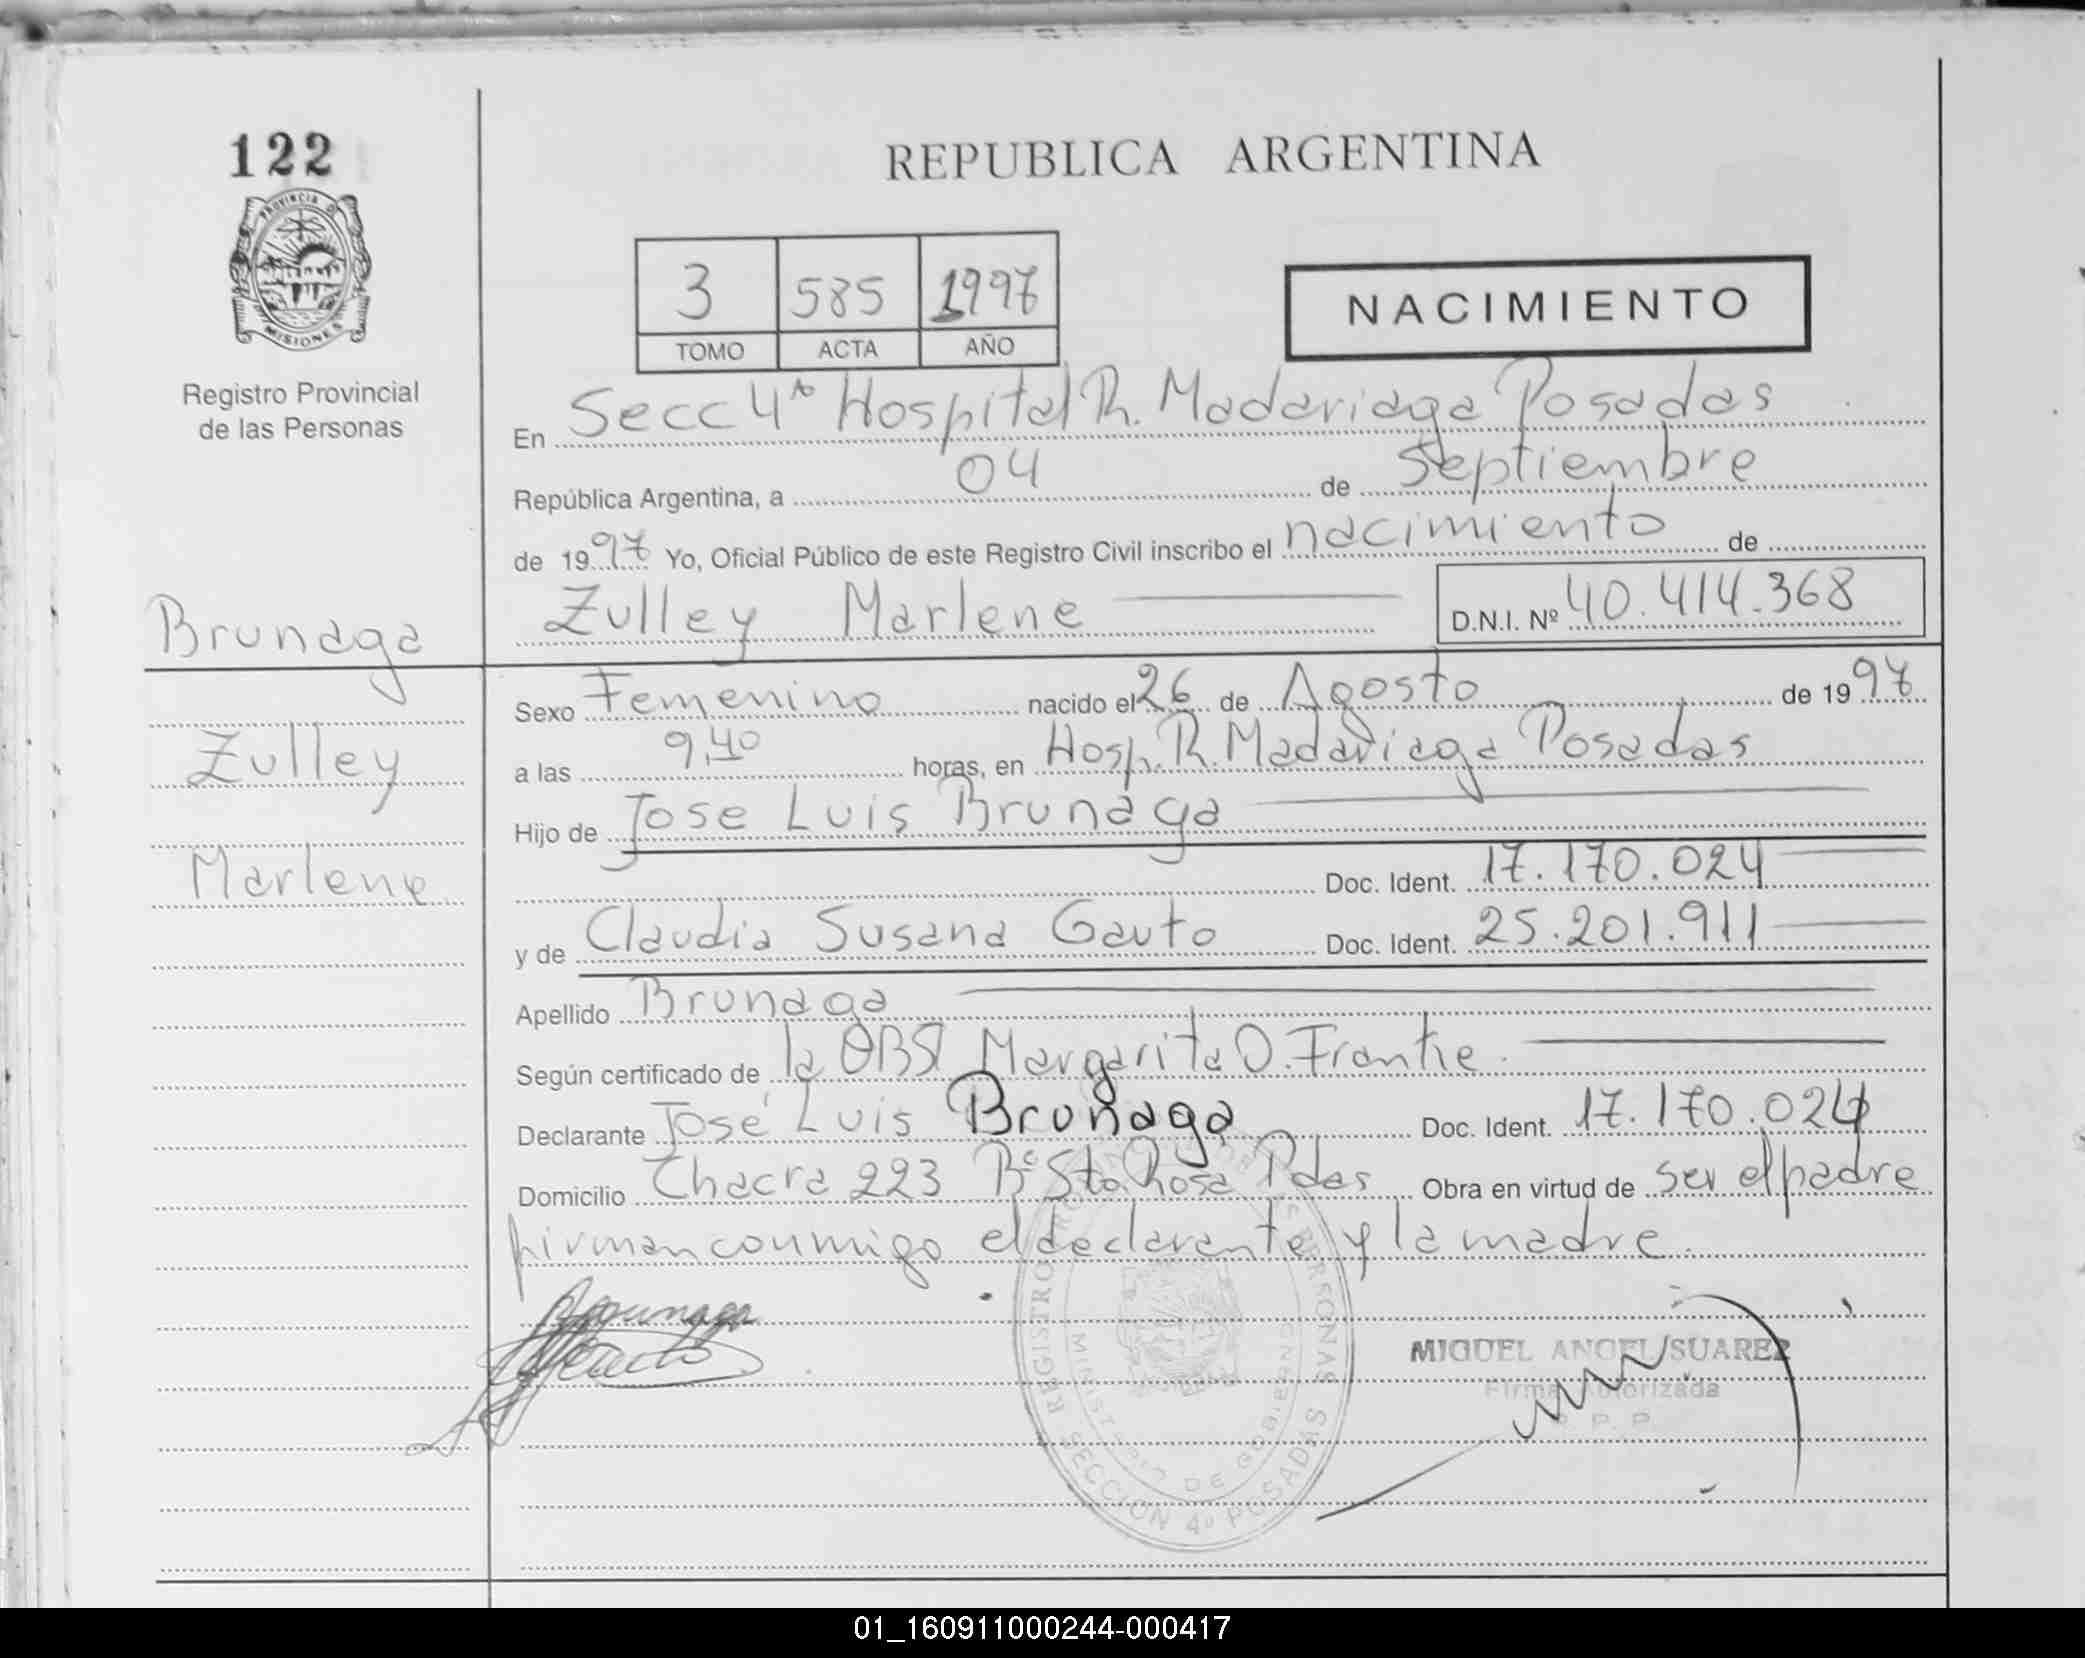 122
PROVINCIA D
MISIONES
Registro Provincial
de las Personas
REPUBLICA ARGENTINA
3 585 1997
TOMO ACTA AÑO
NACIMIENTO
En Secc 4ª Hospital R. Madariaga Posadas
República Argentina, a 04 de Septiembre
de 1997 Yo, Oficial Público de este Registro Civil inscribo el nacimiento de
Zulley Marlene D.N.I. Nº 40.414.368
Brunaga
Zulley
Marlene
Sexo Femenino nacido el 26 de Agosto de 1997
a las 9,40 horas, en Hosp. R. Madariaga Posadas
Hijo de Jose Luis Brunaga
Doc. Ident. 17.170.024
y de Claudia Susana Gauto Doc. Ident. 25.201.911
Apellido Brunaga
Según certificado de la OBST Margarita O.
Declarante José Luis Brunaga Doc. Ident. 17.170.024
Domicilio Chacra 223 Bº Sta Rosa Pdas Obra en virtud de ser el padre
firman conmigo el declarante y la madre.
Brunaga
Gauto
REGISTRO PERSONAS
MINISTERIO DE GOBIERNO
SECCION 4º POSADAS
MIGUEL ANGEL SUAREZ
Firma Autorizada
P. P
01_160911000244-000417